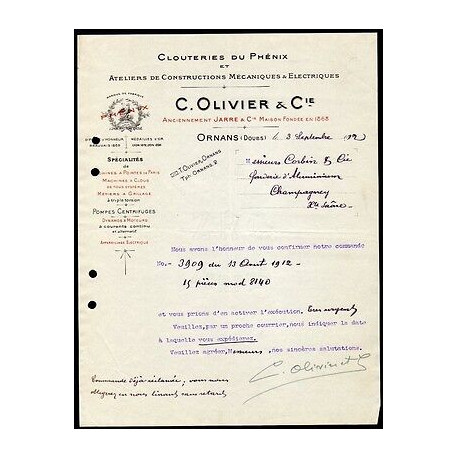 CLOUTERIES DU PHÉNIX
ET
ATELIERS DE CONSTRUCTIONS MÉCANIQUES & ELECTRIQUES
C. OLIVIER & CIE
ANCIENNEMENT JARRE & CIE MAISON FONDÉE EN 1868
ORNANS (DOUBS) le 3 Septembre 1912
MARQUE DE FABRIQUE
PHENIX
D'HONNEUR
MÉDAILLES D'OR
TÉL. OLIVIER, ORNANS
TÉLÉPH. ORNANS. 2
Messieurs Corbin & Cie
Fonderie d'Aluminium
Champagney
Hte Saône
SPÉCIALITÉS
de
MACHINES À POINTES DE PARIS
MACHINES À CLOUS
DE TOUS SYSTÈMES
MÉTIERS À GRILLAGE
à triple torsion
POMPES CENTRIFUGES
DYNAMOS & MOTEURS
à courants continu
et alternatif
APPAREILLAGE ELECTRIQUE
Nous avons l'honneur de vous confirmer notre commande
No.- 3909 du 13 Août 1912
15 pièces mod 2140
et vous prions d'en activer l'exécution. Très urgent
Veuillez, par un proche courrier, nous indiquer la date
à laquelle vous expédierez.
Veuillez agréer, Messieurs, nos sincères salutations.
C. Olivier
Commande déjà réclamée; vous nous
obligerez en nous tenant sans retard